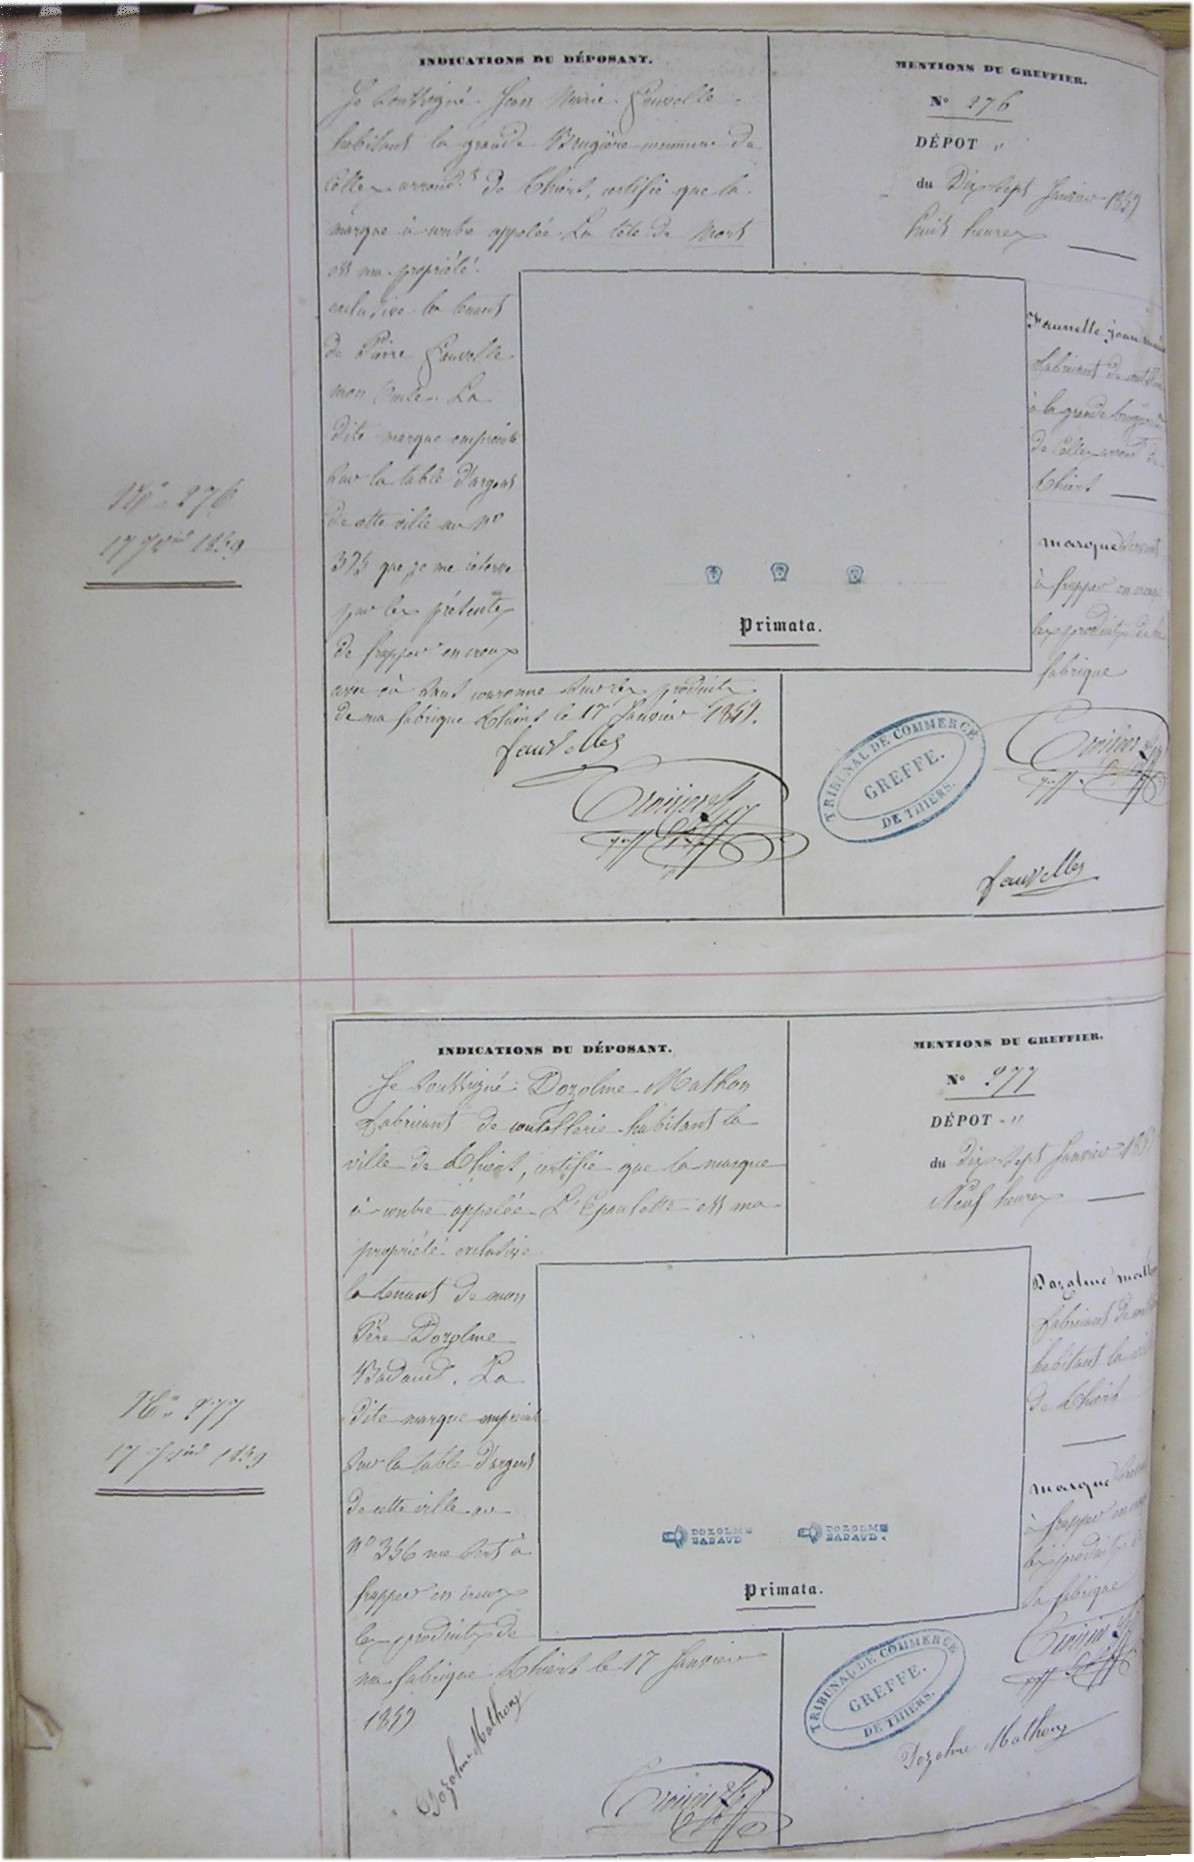 INDICATIONS DU DÉPOSANT.
Je soussigné Jean Marie Fauvelle
habitant la grande Brugière commune de
Celles arrond.t de Thiers, certifie que la
marque à contre appelée La tête de Mort
est ma propriété
exclusive la tenant
de Pierre Fauvelle
mon Oncle. La
dite marque empreinte
sur la table d'argent
de cette ville au N°
375 que je me réserve
par les présentes
de frapper en creux
avec ou sans couronne sur les produits
de ma fabrique Thiers le 17 Janvier 1859.
fauvelles
MENTIONS DU GREFFIER.
N° 276
DÉPOT "
du Dix Sept Janvier 1859
huit heures
Fauvelle Jean
fabricant de
à la grande
de Celles arront de
Thiers
marque servant
à frapper en creux
les produits de la
fabrique
Primata.
TRIBUNAL DE COMMERCE
GREFFE.
DE THIERS.
fauvelles
N° 276
17 Jvier 1859
INDICATIONS DU DÉPOSANT.
Je soussigné Dozolme Mathon
fabricant de coutellerie habitant la
ville de Thiers, certifie que la marque
à contre appelée L'Epaulette est ma
propriété exclusive
la tenant de mon
Père Dozolme
Badaud. La
dite marque empreinte
sur la table d'argent
de cette ville au
N° 356 me sert à
frapper en creux
les produits de
ma fabrique Thiers le 17 Janvier
1859
Dozolme Mathon
MENTIONS DU GREFFIER.
N° 277
DÉPOT "
du Dix Sept Janvier
Neuf heures
Dozolme
fabricant de
habitant la
de Thiers
marque
à frapper en
les produits
la fabrique
DOZOLME
BADAUD
DOZOLME
BADAUD.
Primata.
TRIBUNAL DE COMMERCE
GREFFE.
DE THIERS.
Dozolme Mathon
N° 277
17 Jvier 1859